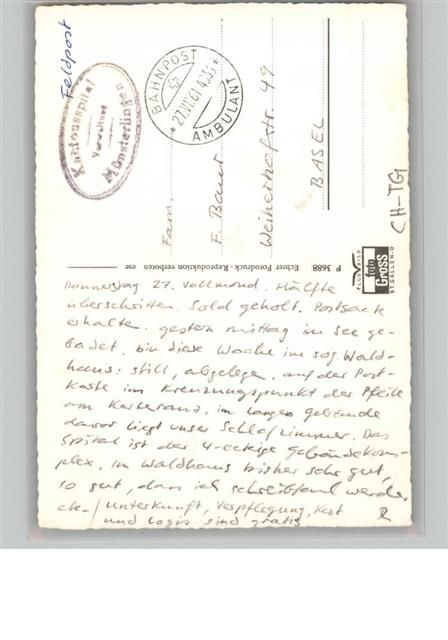 Feldpost
Kantonsspital
Verwaltung
Münsterlingen
BAHNPOST
27.VI.61
AMBULANT
Fam.
F. Baur
Weiherhofstr. 49
BASEL
CH-TG
P 3688 Echter Fotodruck - Reproduktion verboten ese
FLUGBILD
foto
Gross
ST.GALLEN-O
Donnerstag 27. Vollmond. Hälfte
überschritten. Sold geholt. Postsack
erhalten. gestern mittag im See ge-
badet. bin diese Woche im sog Wald-
haus: still, abgelegen. auf der Post-
karte im Kreuzungspunkt der Pfeile
am Kartenrand. im langen gebäude
davor liegt unser Schlafzimmer. Das
Spital ist der 4-eckige gebäudekom-
plex. im Waldhaus bisher sehr gut,
so gut, dass ich schreibfaul werde.
etc. / Unterkunft, Verpflegung, Kost
und Logis sind gratis R